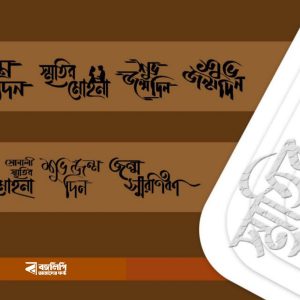 স্মৃতির
মোহনা
শুভ
জন্মদিন
শুভ
জন্মদিন
সোনালী
স্মৃতির
মোহনা
শুভ জন্ম
দিন
জন্ম
স্মরণিকা
বঙ্গলিপি
আমাদের ফন্ট